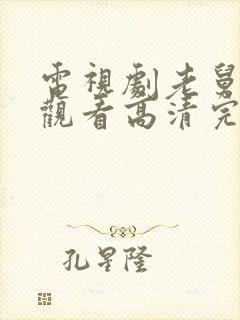 電視劇老舅
觀看高清完
孔星隆